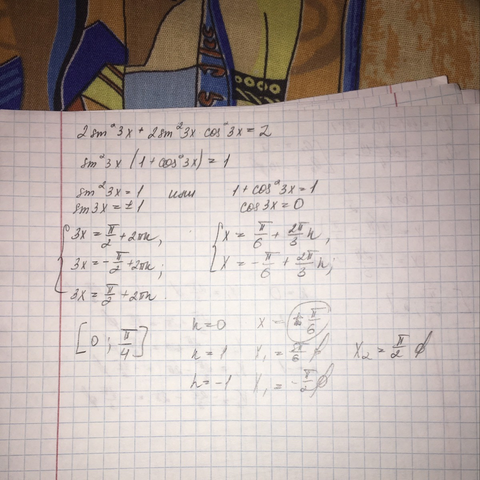 2sin²3x + 2sin²3x cos²3x = 2
sin²3x (1+cos²3x) = 1
sin²3x = 1 или 1+cos²3x = 1
sin3x = ±1 cos3x = 0
3x = π/2 + 2πn, x = π/6 + 2π/3 n,
3x = -π/2 + 2πn; x = -π/6 + 2π/3 n;
3x = π/2 + 2πn.
[0; π/4] n=0 x = π/6
n=1 x₁ = 5π/6 ∅ x₂ = π/2 ∅
n=-1 x₁ = -π/2 ∅